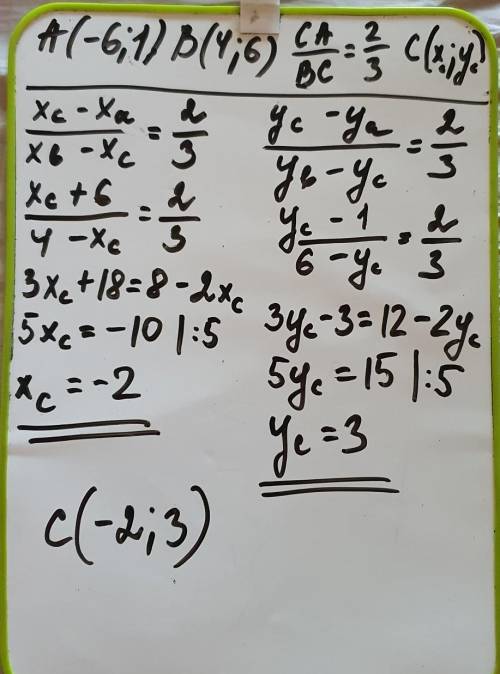 A(-6;1) B(4;6) CA/BC = 2/3 C(xc; yc)
(xc - xa)/(xb - xc) = 2/3
(xc + 6)/(4 - xc) = 2/3
3xc + 18 = 8 - 2xc
5xc = -10 |:5
xc = -2
(yc - ya)/(yb - yc) = 2/3
(yc - 1)/(6 - yc) = 2/3
3yc - 3 = 12 - 2yc
5yc = 15 |:5
yc = 3
C(-2;3)